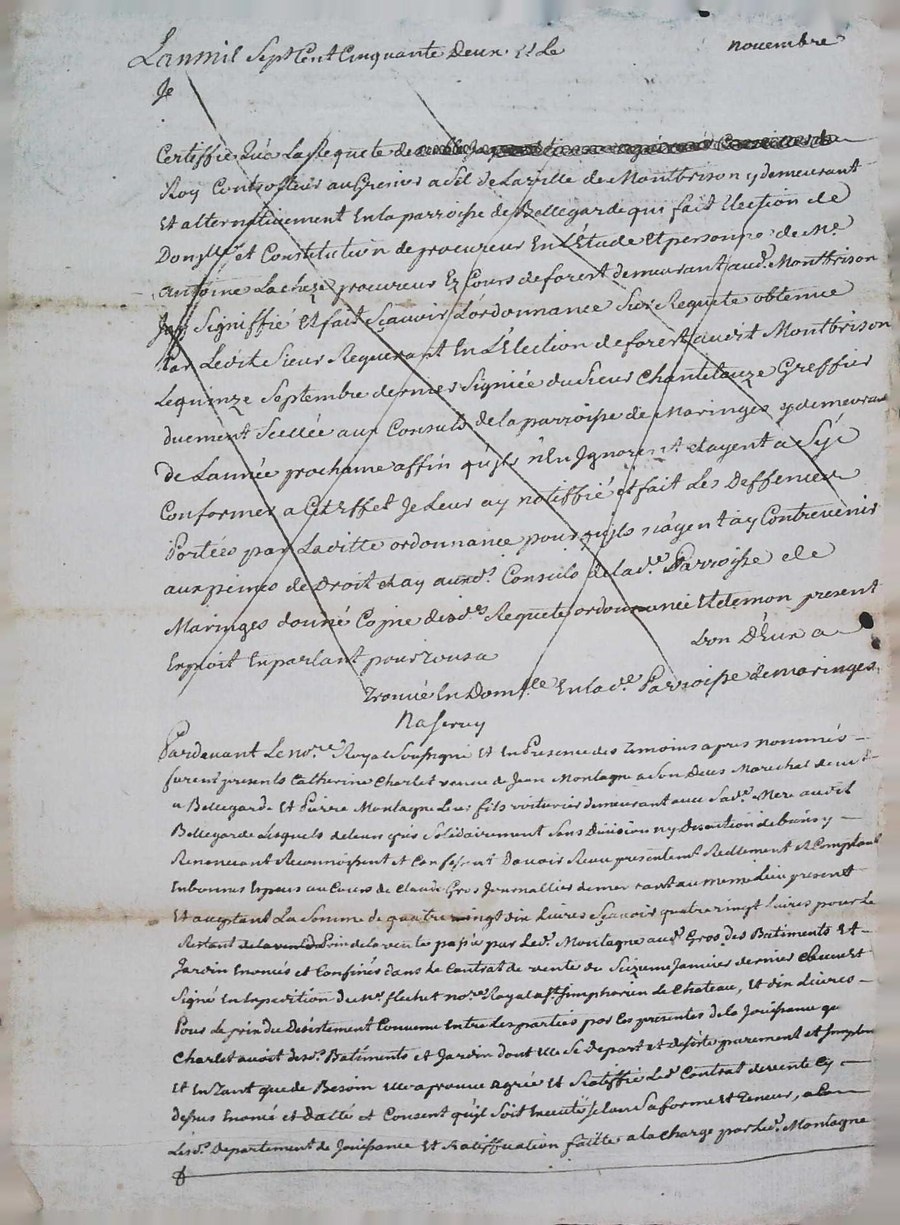 Lanmil Sept Cent Cinquante Deux et Le novembre
Je
Certiffie Que La Requete de
Roy Controlleur au Grenier a Sel de La ville de Montbrison y demeurant
Et alternativement En la parroisse de Bellegarde qui fait Election de
Et Constitution de procureur En L'Etude Et personne de Me
antoine Lacheze procureur Ez Cours de forest demeurant aud. Montbrison
Jay Signiffié Et fait Sçauoir L'ordonnance Sur Requete obtenue
Par Ledit Sieur Requerant En L'Election de forest audit Montbrison
Le quinze Septembre dernier Signiée du Sieur Chantelauze Greffier
duement Scellée aux Consuls de la parroisse de Maringes y demeurant
de L'année prochaine affin qu'ils n'En Ignorent et ayent a S'y
Conformer a Cet Effet Je Leur ay notiffié et fait Les Deffences
Portées par Laditte ordonnance pour qu'ils n'ayent a y Contrevenir
aux peines de Droit et ay auxds. Consuls de lade. Parroisse de
Maringes donné Copie desds. Requete ordonnance Et de mon present
Exploit En parlant pour Tous a Lun D'Eux a
Trouvé En Domlle En lade. Parroisse de maringes
Na Servy
Pardevant Le nore. Royal Soussigné Et En Presence des Temoins apres nommés
furent presents Catherine Charlet veuve de Jean Montagne a son Deces Marechal
a Bellegarde Et Pierre Montagne Leur fils voiturier demeurant avec Sade. Mere audit
Bellegarde Lesquels de leur gré Solidairement Sans Division ny Discution de biens y
Renonçant Reconnoissent et Confessent Davoir Receu presentemt. Reellement et Comptant
En bonnes Especes au Cours de Claude Gros Journallier demeurant au meme Lieu present
Et acceptant La Somme de quatre vingt dix Livres Sçavoir quatre vingt Livres pour le
Restant prix de la vente passée par Led. Montagne aud. Gros des Batiments Et
Jardin Enoncés et Confinés dans Le Contrat de vente du Seizieme Janvier dernier
Signé En Expedition du Me. flechet nore. Royal a St. Simphorien Le Chateau, Et dix Livres
Pour Le prix du Desistement Convenu Entre Les parties par Ces presentes de la Jouissance que
Charlet avoit desds. Batiments et Jardin dont Elle Se Depart et desiste purement et Simplem.
Et En Tant que de Besoin Elle approuve agrée Et Ratiffie Led. Contrat de vente Cy
dessus Enoncé et Datté et Consent qu'il Soit Executé Selon Sa forme Et Teneur,
Lesd. Departement de Jouissance Et Ratiffication faitte a la Charge par Led. Montagne